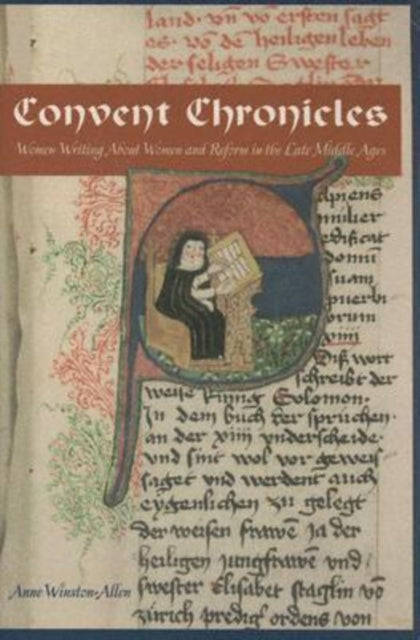 land · vn̄ vō ersten sagt
es · vō dē heiligen leben
der seligen Swester
Convent Chronicles
Women Writing About Women and Reform in the Late Middle Ages
apiens
mulier
edificat
domū
suam
puerbi
orum
xiiii
Diß wort
schreibt der
weise kunig Solomon ·
In dem buch der spruchen ·
an der xiiii vnderscheide ·
vnd sint wol vor geweis
saget vnd werdent auch
eygenlichen zu gelegt
der weisen frawē ja der
heiligen jungfrawē vnd
swester Elisabet staglin vō
zürich predig' ordens von
Anne Winston-Allen